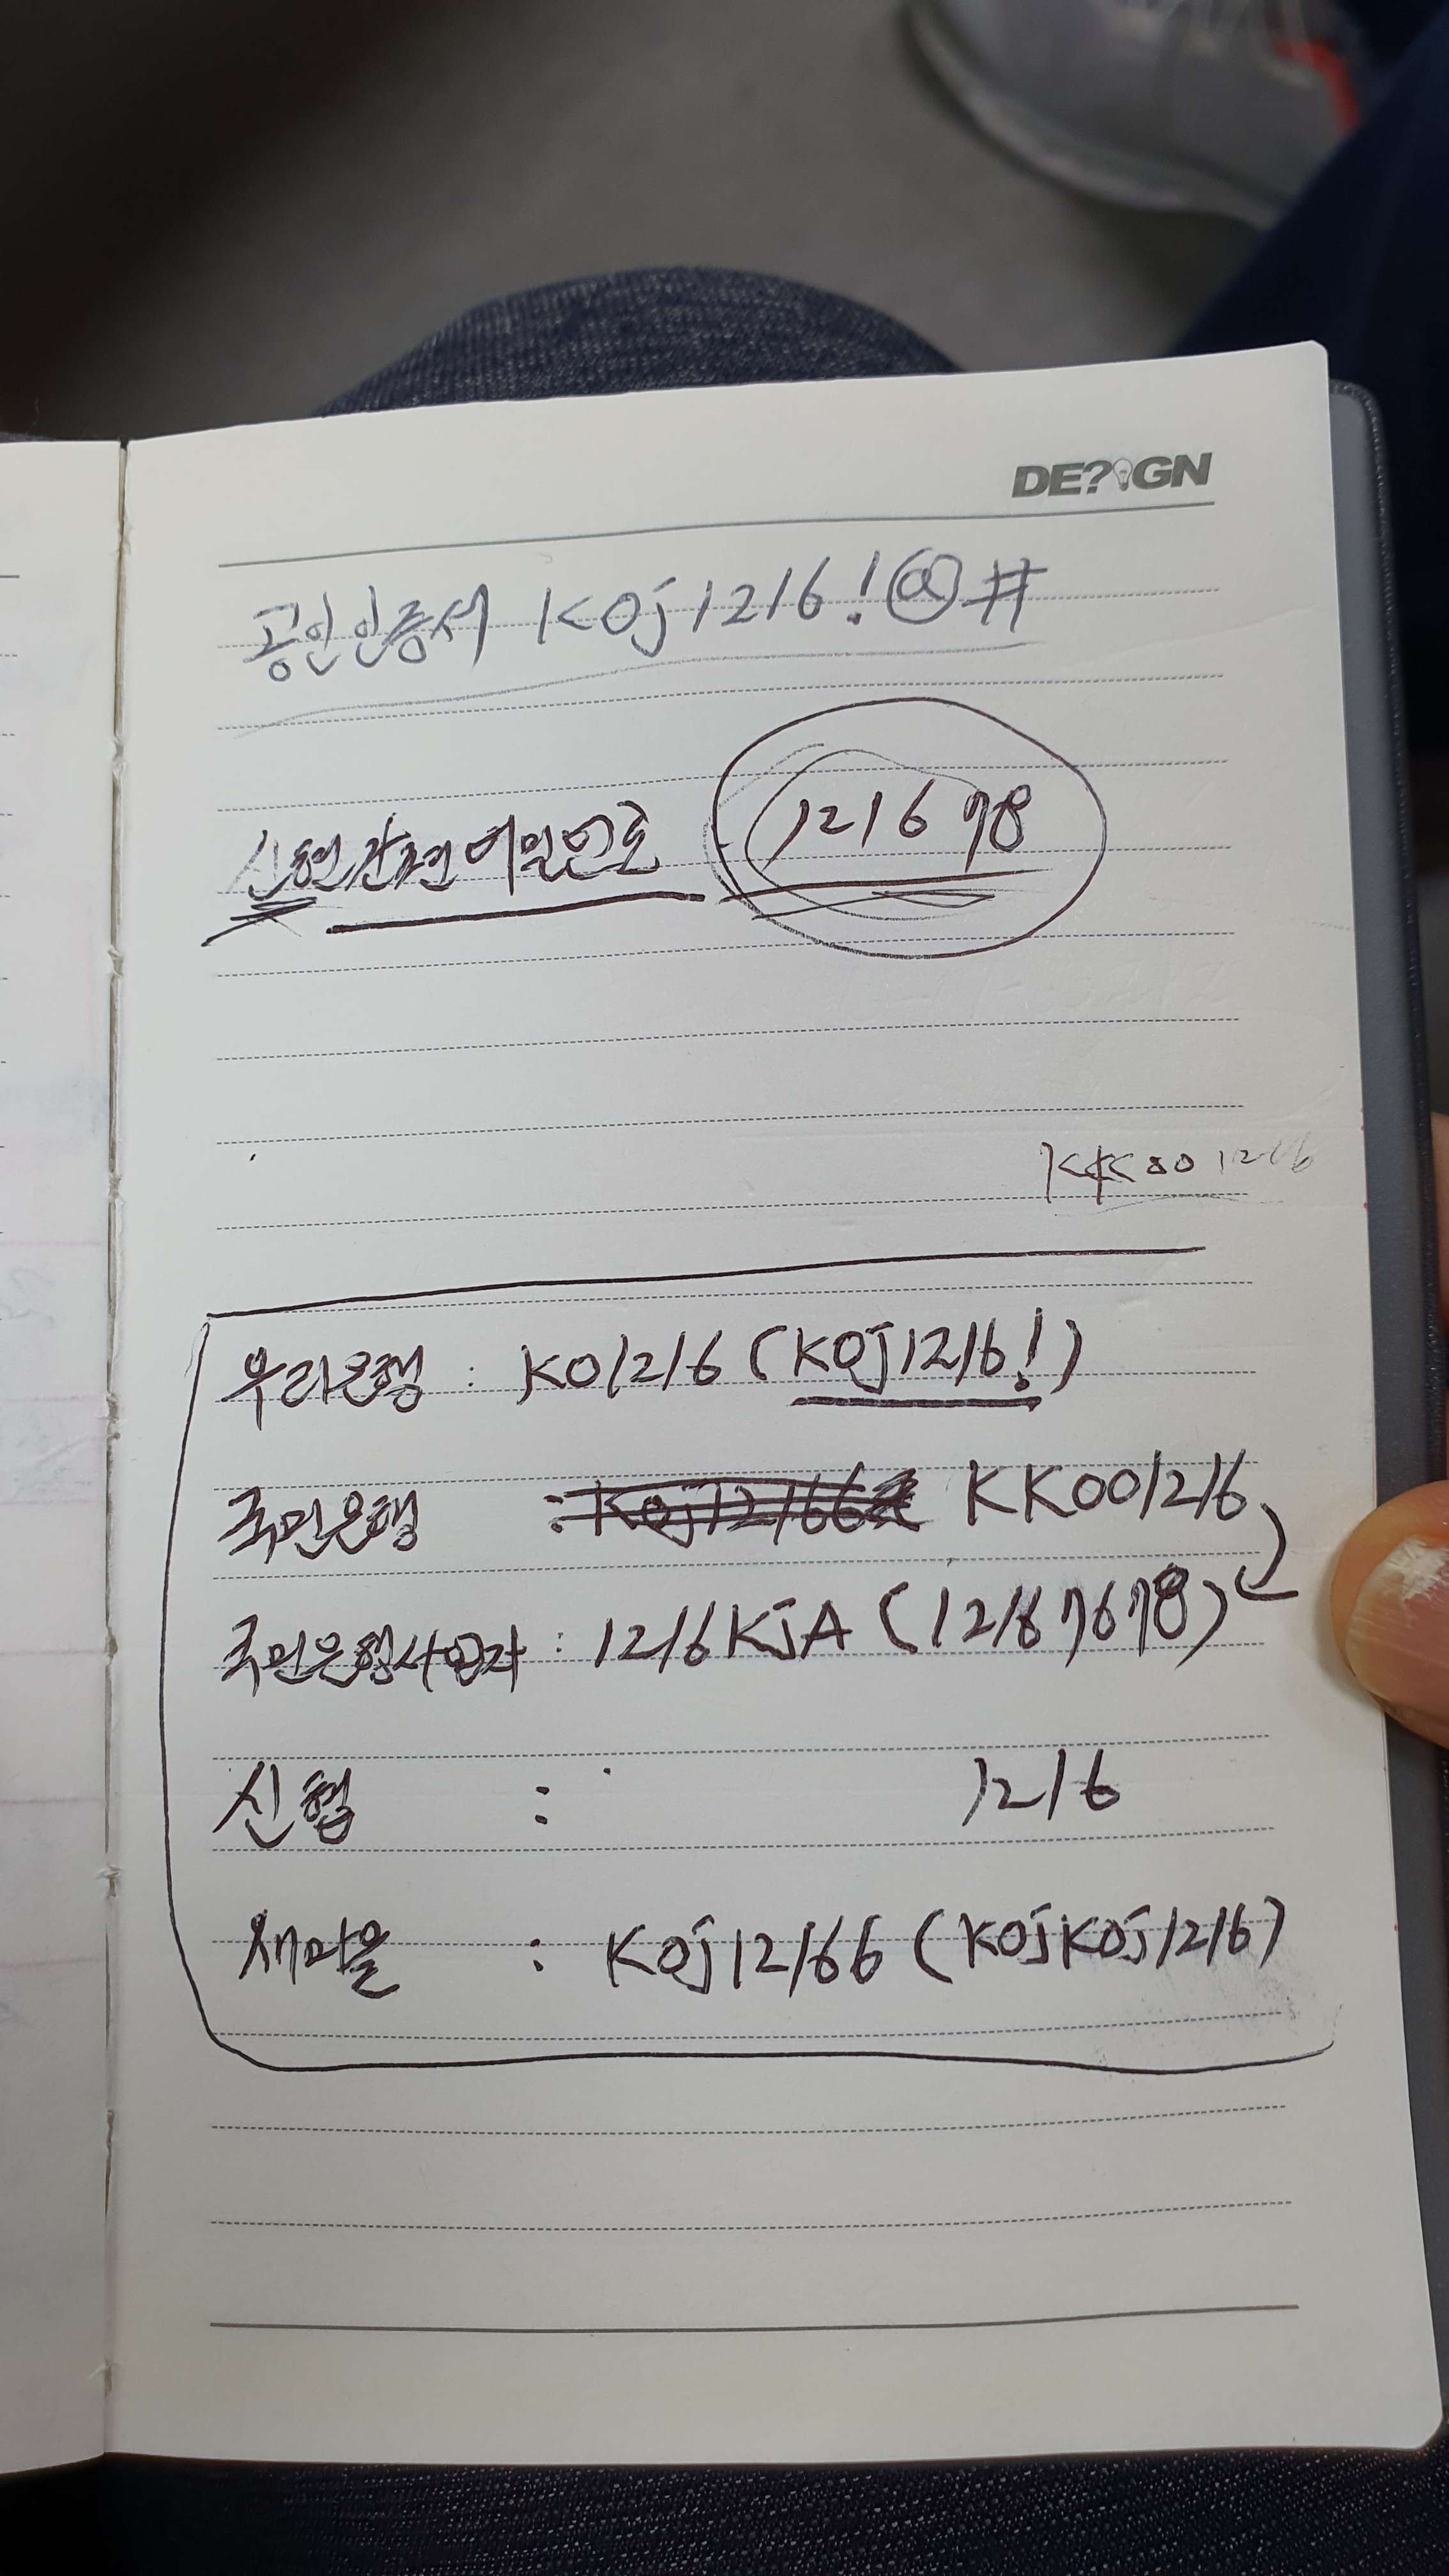 DE?GN
공인인증서 KOj1216!@#
신협간편비밀번호 121678
KKOO1216
우리은행 : KO1216 (KOj1216!)
국민은행 : KOj12166 KKOO1216
국민은행사업자 : 1216KJA (12167678)
신협 : 1216
새마을 : KOj12166 (KOjKOj1216)